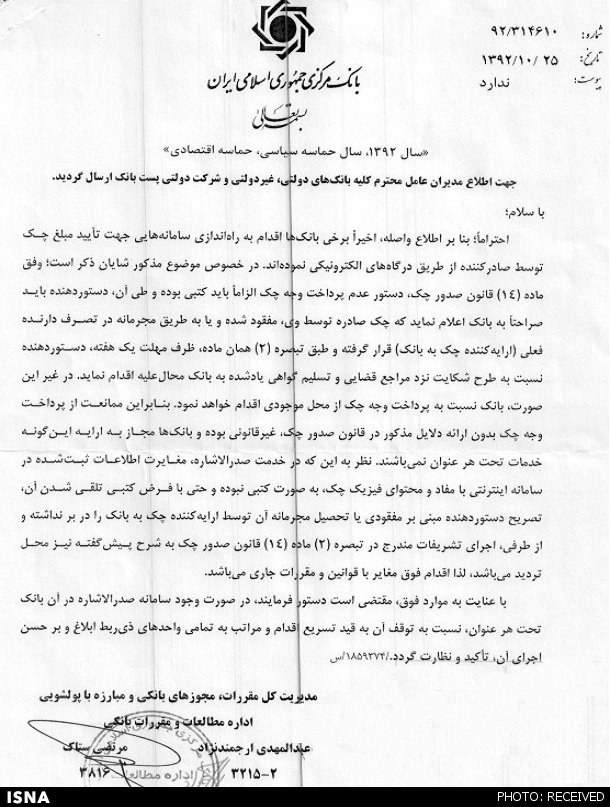 شماره: ۹۲/۳۱۴۶۱۰
تاریخ: ۱۳۹۲/۱۰/۲۵
پیوست: ندارد
بانک مرکزی جمهوری اسلامی ایران
بسمه تعالی
«سال ۱۳۹۲، سال حماسه سیاسی، حماسه اقتصادی»
جهت اطلاع مدیران عامل محترم کلیه بانک‌های دولتی، غیردولتی و شرکت دولتی پست بانک ارسال گردید.
با سلام؛
احتراماً؛ بنا بر اطلاع واصله، اخیراً برخی بانک‌ها اقدام به راه‌اندازی سامانه‌هایی جهت تأیید مبلغ چک
توسط صادرکننده از طریق درگاه‌های الکترونیکی نموده‌اند. در خصوص موضوع مذکور شایان ذکر است؛ وفق
ماده (۱۴) قانون صدور چک، دستور عدم پرداخت وجه چک الزاماً باید کتبی بوده و طی آن، دستوردهنده باید
صراحتاً به بانک اعلام نماید که چک صادره توسط وی، مفقود شده و یا به طریق مجرمانه در تصرف دارنده
فعلی (ارایه‌کننده چک به بانک) قرار گرفته و طبق تبصره (۲) همان ماده، ظرف مهلت یک هفته، دستوردهنده
نسبت به طرح شکایت نزد مراجع قضایی و تسلیم گواهی یادشده به بانک محال‌علیه اقدام نماید. در غیر این
صورت، بانک نسبت به پرداخت وجه چک از محل موجودی اقدام خواهد نمود. بنابراین ممانعت از پرداخت
وجه چک بدون ارائه دلایل مذکور در قانون صدور چک، غیرقانونی بوده و بانک‌ها مجاز به ارایه این‌گونه
خدمات تحت هر عنوان نمی‌باشند. نظر به این که در خدمت صدرالاشاره، مغایرت اطلاعات ثبت‌شده در
سامانه اینترنتی با مفاد و محتوای فیزیک چک، به صورت کتبی نبوده و حتی با فرض کتبی تلقی شدن آن،
تصریح دستوردهنده مبنی بر مفقودی یا تحصیل مجرمانه آن توسط ارایه‌کننده چک به بانک را در بر نداشته و
از طرفی، اجرای تشریفات مندرج در تبصره (۲) ماده (۱۴) قانون صدور چک به شرح پیش‌گفته نیز محل
تردید می‌باشد، لذا اقدام فوق مغایر با قوانین و مقررات جاری می‌باشد.
با عنایت به موارد فوق، مقتضی است دستور فرمایند، در صورت وجود سامانه صدرالاشاره در آن بانک
تحت هر عنوان، نسبت به توقف آن به قید تسریع اقدام و مراتب به تمامی واحدهای ذی‌ربط ابلاغ و بر حسن
اجرای آن، تأکید و نظارت گردد./۱۸۵۹۳۷۴/س
مدیریت کل مقررات، مجوزهای بانکی و مبارزه با پولشویی
اداره مطالعات و مقررات بانکی
عبدالمهدی ارجمندنژاد مرتضی ستاک
۳۲۱۵-۲ ۳۸۱۶
اداره مطالعات
ISNA
PHOTO: RECEIVED